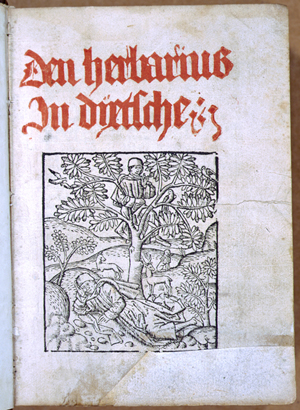 Den herbarius
In dietsche